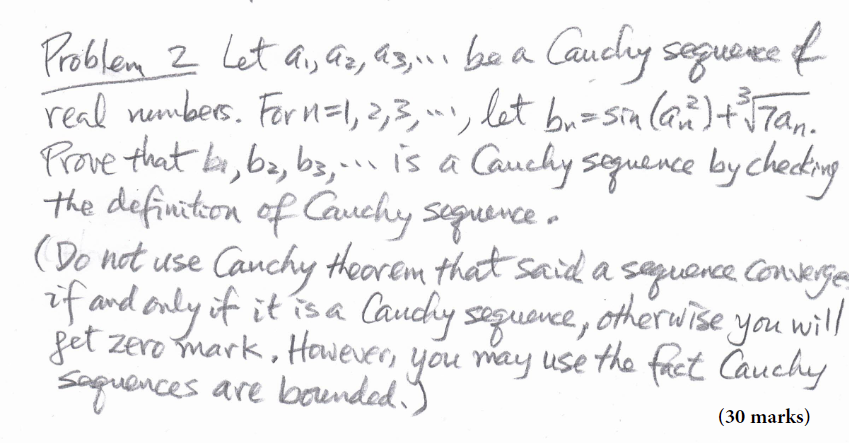 Problem 2 Let a₁, a₂, a₃, ... be a Cauchy sequence of
real numbers. For n=1, 2, 3, ..., let bₙ = sin(aₙ²) + ∛7aₙ.
Prove that b₁, b₂, b₃, ... is a Cauchy sequence by checking
the definition of Cauchy sequence.
(Do not use Cauchy theorem that said a sequence converges
if and only if it is a Cauchy sequence, otherwise you will
get zero mark. However, you may use the fact Cauchy
sequences are bounded.)
(30 marks)